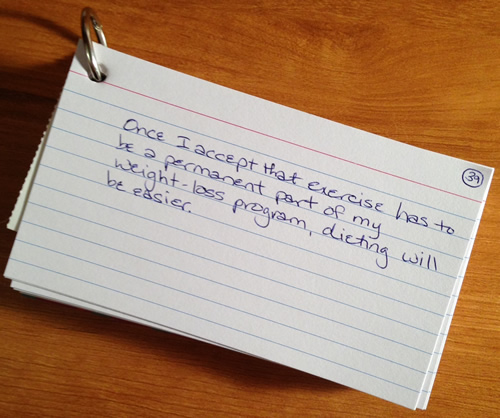 39
Once I accept that exercise has to
be a permanent part of my
weight-loss program, dieting will
be easier.